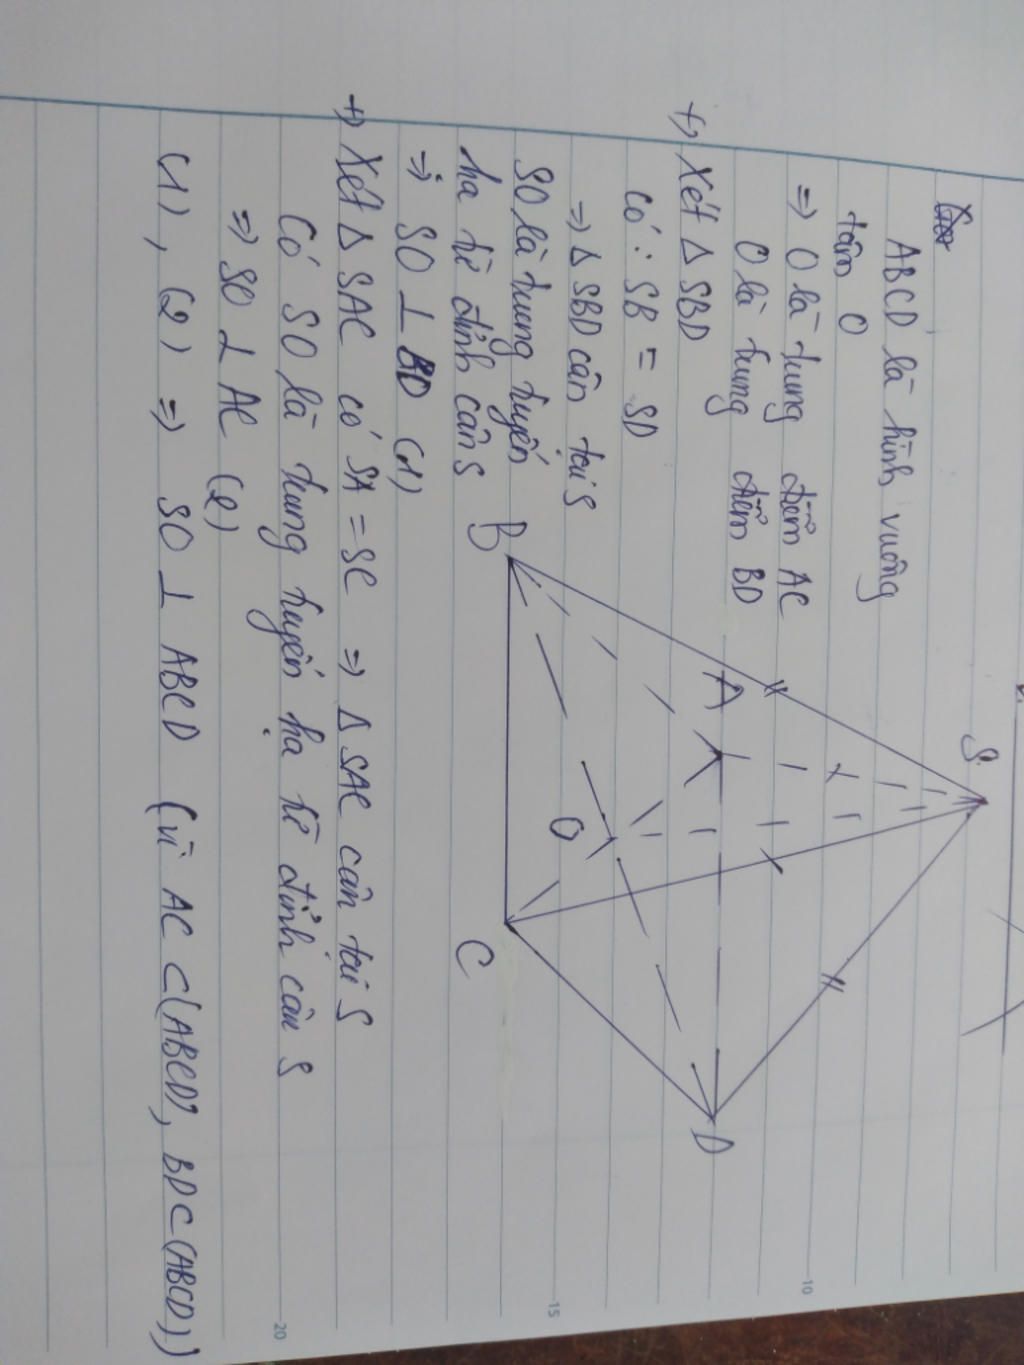 ABCD là hình vuông
tâm O
=> O là trung điểm AC
O là trung điểm BD
+, Xét Δ SBD
có: SB = SD
=> Δ SBD cân tại S
SO là trung tuyến
hạ từ đỉnh cân S
=> SO ⊥ BD (1)
+, Xét Δ SAC có SA = SC => Δ SAC cân tại S
Có SO là trung tuyến hạ từ đỉnh cân S
=> SO ⊥ AC (2)
(1), (2) => SO ⊥ ABCD (vì AC ⊂ (ABCD), BD ⊂ (ABCD))
S
A
B
O
C
D
10
15
20